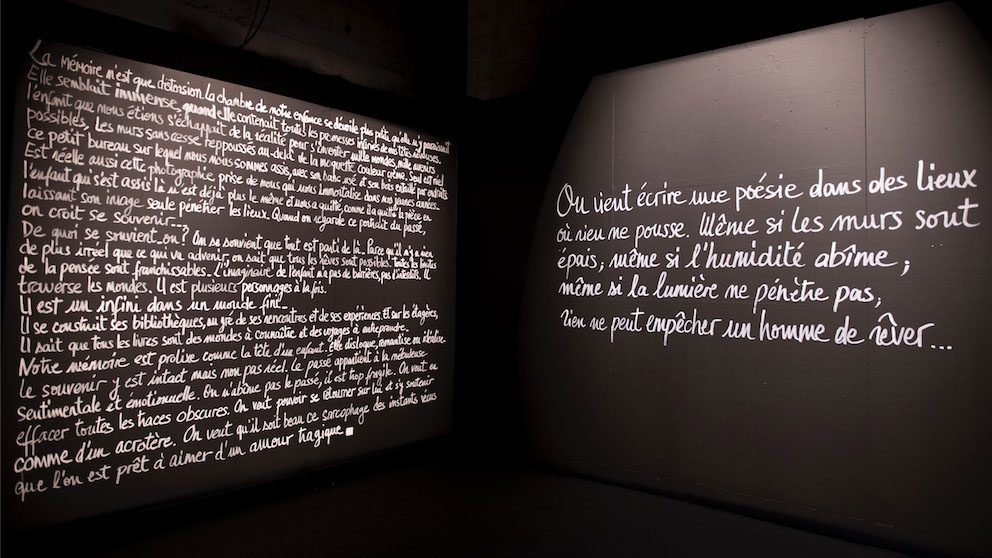 La mémoire n'est que distorsion. La chambre de notre enfance se dévoile plus petite qu'elle n'y paraissait
Elle semblait immense, quand elle contenait toutes les promesses infinies de nos têtes
l'enfant que nous étions s'échappait de la réalité pour s'inventer mille mondes, mille avenirs
possibles, les murs sans cesse repoussés au-delà de la moquette couleur crème. Seul est réel
ce petit bureau sur lequel nous nous sommes assis, avec son
Est réelle aussi cette photographie prise de nous qui nous immortalise dans nos jeunes années
l'enfant qui s'est assis là n'est déjà plus le même et nous a quitté, comme il a quitté la pièce en
laissant son image seule pénétrer les lieux. Quand on regarde ce portrait du passé,
on croit se souvenir...
De quoi se souvient-on? On se souvient que tout est parti de là. Parce qu'il n'y a rien
de plus irréel que ce qui va advenir, on sait que tous les rêves sont possibles. Toutes les limites
de la pensée sont franchissables. L'imaginaire de l'enfant n'a pas de barrières, pas d'interdits. Il
traverse les mondes. Il est plusieurs personnages à la fois.
Il est un infini dans un monde fini...
Il se construit ses bibliothèques, au gré de ses rencontres et de ses expériences. Et sur les étagères,
Il sait que tous les livres sont des mondes à connaître et des voyages à entreprendre.
Notre mémoire est prolixe comme la tête d'un enfant. Elle dialogue, romantise ou idéalise.
le souvenir y est intact mais non pas réel. Le passé appartient à la nébuleuse
sentimentale et émotionnelle. On n'abîme pas le passé, il est trop fragile. On veut en
effacer toutes les traces obscures. On veut pouvoir se retourner sur lui et s'y soutenir
comme d'un acrotère. On veut qu'il soit beau ce sarcophage des instants vécus
que l'on est prêt à aimer d'un amour tragique
On vient écrire une poésie dans des lieux
où rien ne pousse. Même si les murs sont
épais, même si l'humidité abîme ;
même si la lumière ne pénètre pas,
rien ne peut empêcher un homme de rêver...